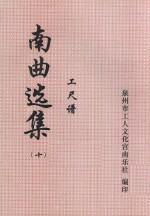 南曲选集
(十)
工尺谱
泉州市工人文化宫南乐社 编印